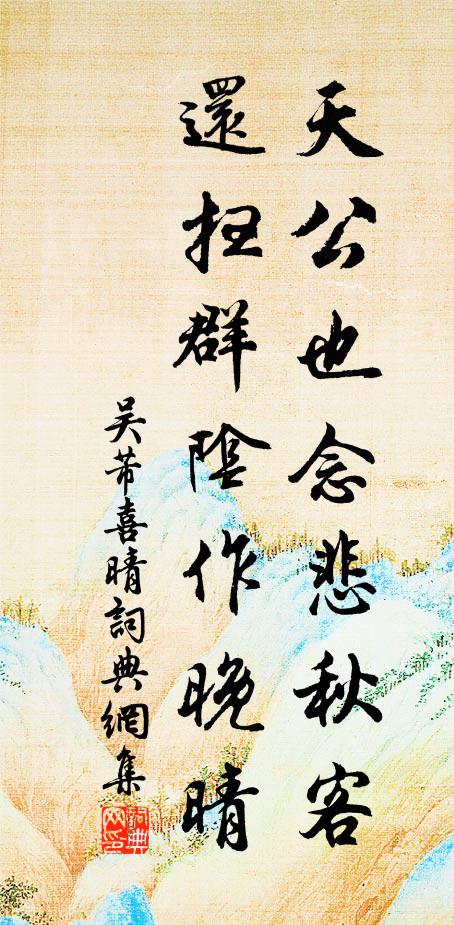 天公也念悲秋客
還扫群陰作晚晴
吴芾喜晴詞典網集
詞典网印